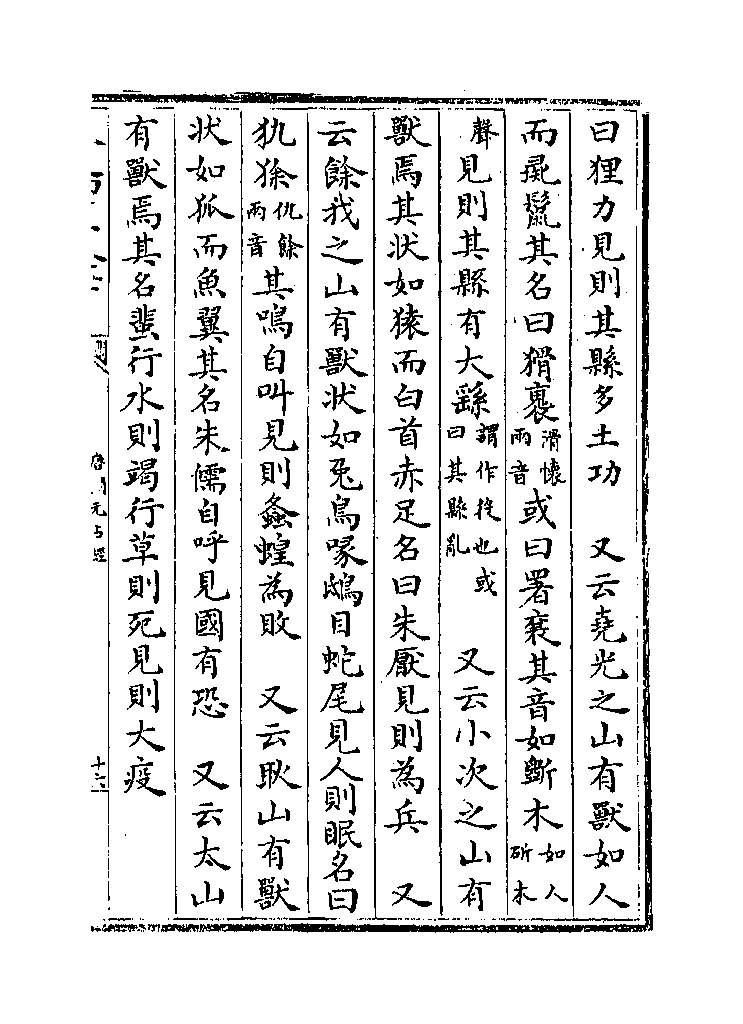 曰狸力見則其縣多土功　又云堯光之山有獸如人
而彘鬣其名曰猾褢滑懷兩音或曰署衺其音如斷木如人斫木
聲見則其縣有大繇謂作役也或曰其縣亂　又云小次之山有
獸焉其状如猿而白首赤足名曰朱厭見則為兵　又
云餘我之山有獸状如兎鳥喙鴟目蛇尾見人則眠名曰
犰狳仇餘兩音其鳴自叫見則螽蝗為敗　又云耿山有獸
状如狐而魚翼其名朱儒自呼見國有恐　又云太山
有獸焉其名蜚行水則竭行草則死見則大疫
唐開元占經
十六